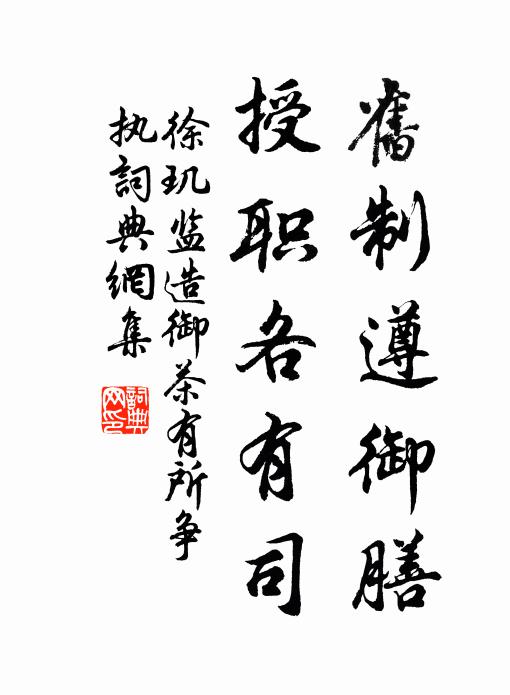 舊制遵御膳
授职各有司
徐玑监造御茶有所争
执詞典網集
詞典网印